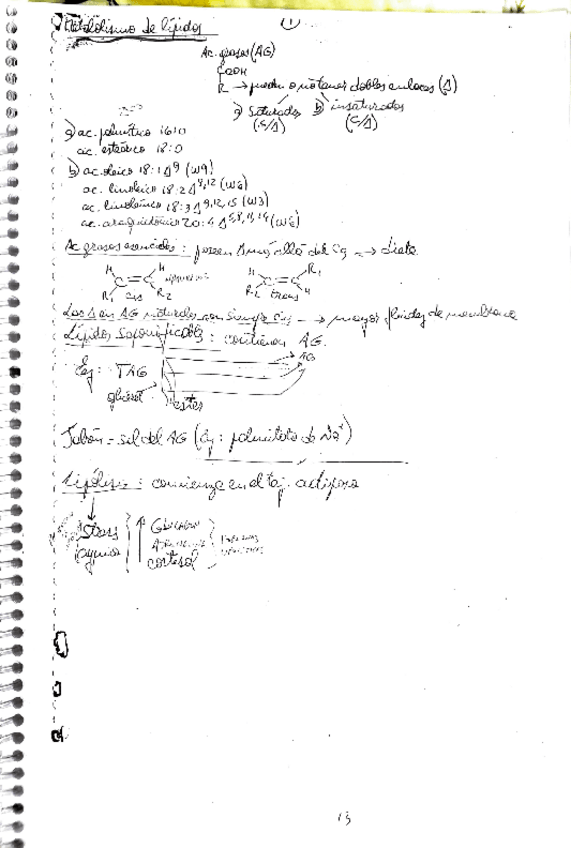 Metabolismo de lípidos
1
Ac. grasos (AG)
COOH
R → pueden o no tener dobles enlaces (Δ)
a) Saturados b) insaturados
(S/Δ) (C/Δ)
a) ac. palmítico 16:0
ac. esteárico 18:0
b) ac. oleico 18:1 Δ9 (ω9)
ac. linoleico 18:2 Δ9,12 (ω6)
ac. linolénico 18:3 Δ9,12,15 (ω3)
ac. araquidónico 20:4 Δ5,8,11,14 (ω6)
Ac grasos esenciales: poseen Δ más allá del C9 → dieta
H H H R1
C=C C=C
R1 cis R2 R2 trans H
Los Δ en AG naturales son siempre cis → mayor fluidez de membrana
Lípidos Saponificables: contienen AG.
Ej: TAG AG
glicerol ester
Jabón = sal del AG (Ej: palmitato de Na+)
Lipólisis: comienza en el tej. adiposo
Stress
ayuno
↑ Glucagon
Adrenalina
cortisol
13